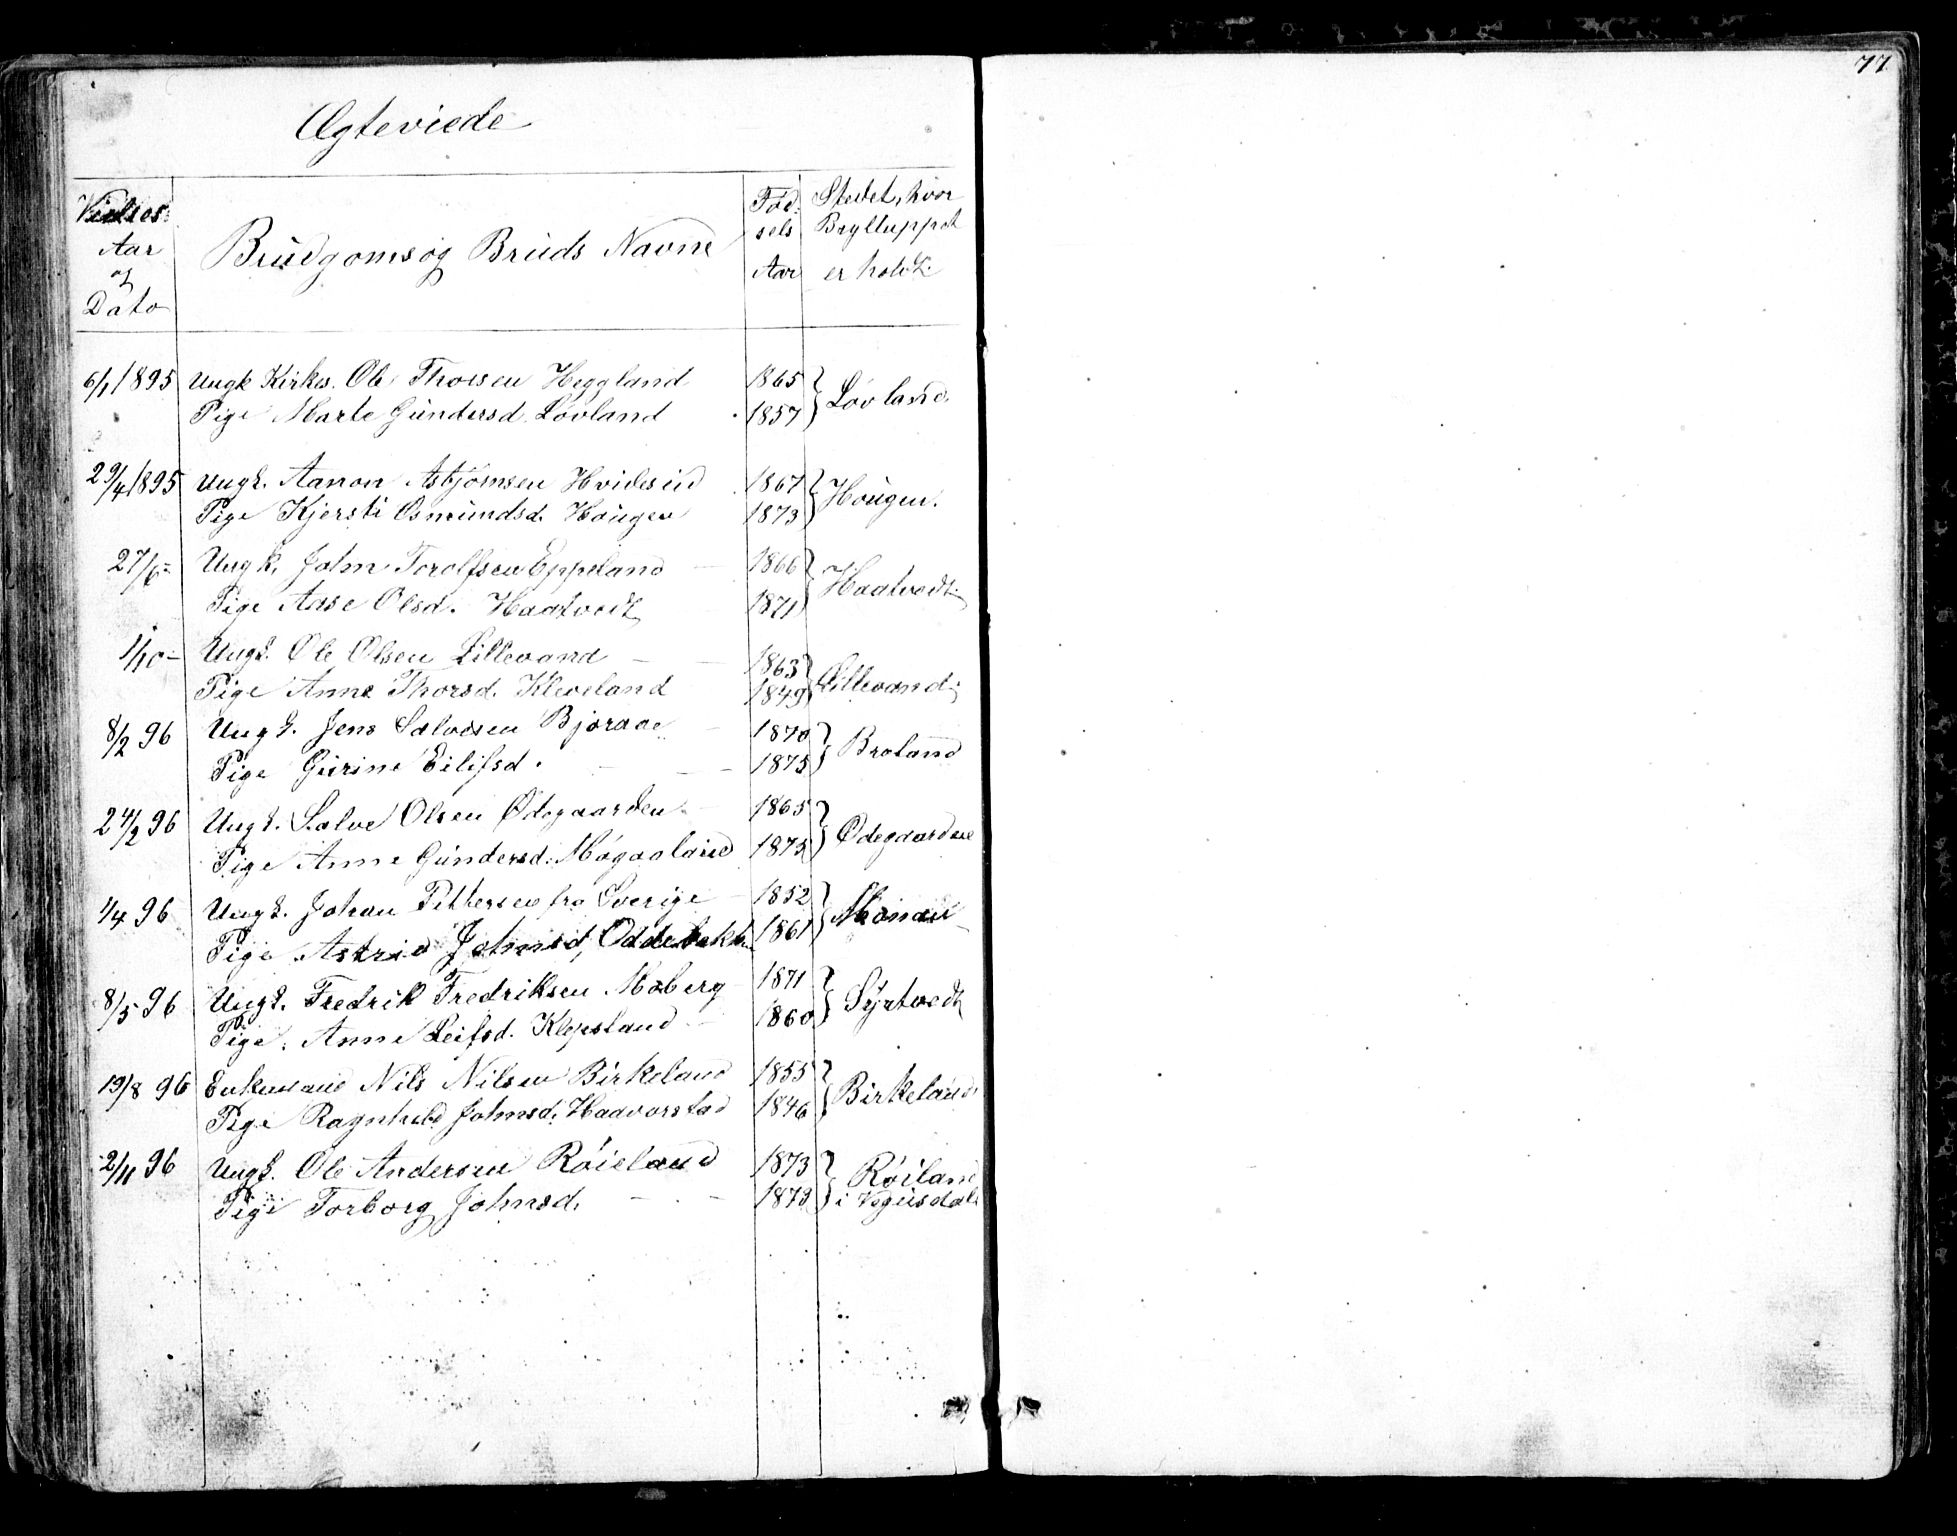 77
Ægteviede
Vielses Aar og Dato
Brudgoms og Bruds Navne
Fød-sels Aar
Stedet, hvor Brylluppet er holdt.
6/1 1895 Ungk Kirkes. Ole Thorsen Heggland 1865
Pige Marte Gundersd. Løvland 1857 } Løvland.
29/4 1895 Ungk. Aanon Asbjørnsen Hvidesund 1867
Pige Kjersti Osmundsd. Hougen 1873 } Hougen.
27/6 = Ungk. John Torolfsen Eppeland 1866
Pige Aase Olsd. Haatvedt 1871 } Haatvedt.
1/10 - Ungk. Ole Olsen Lillevand 1863
Pige Anne Thorsd. Kleveland 1849 } Lillevand.
8/2 96 Ungk. Jens Salvesen Bjoraae 1870
Pige Gurine Eilifsd. 1875 } Broland
24/2 96 Ungk. Salve Olsen Ødegaarden 1865
Pige Anne Gundersd. 1875 } Ødegaardene
1/4 96 Ungk. Johan Pettersen fra Sverige 1852
Pige Astrid Johnsd, 1861 }
8/5 96 Ungk. Fredrik Fredriksen Moberg 1871
Pige. Anne Leifsd. 1860 } Syrtvedt
19/8 96 Enkemand Nils Nilsen Birkeland 1855
Pige Ragnhild Johnsd. Haavorstad 1846 } Birkeland
2/11 96 Ungk. Ole Andersen Røieland 1873
Pige Torborg Johnsd. 1873 } Røiland i Vegusdal